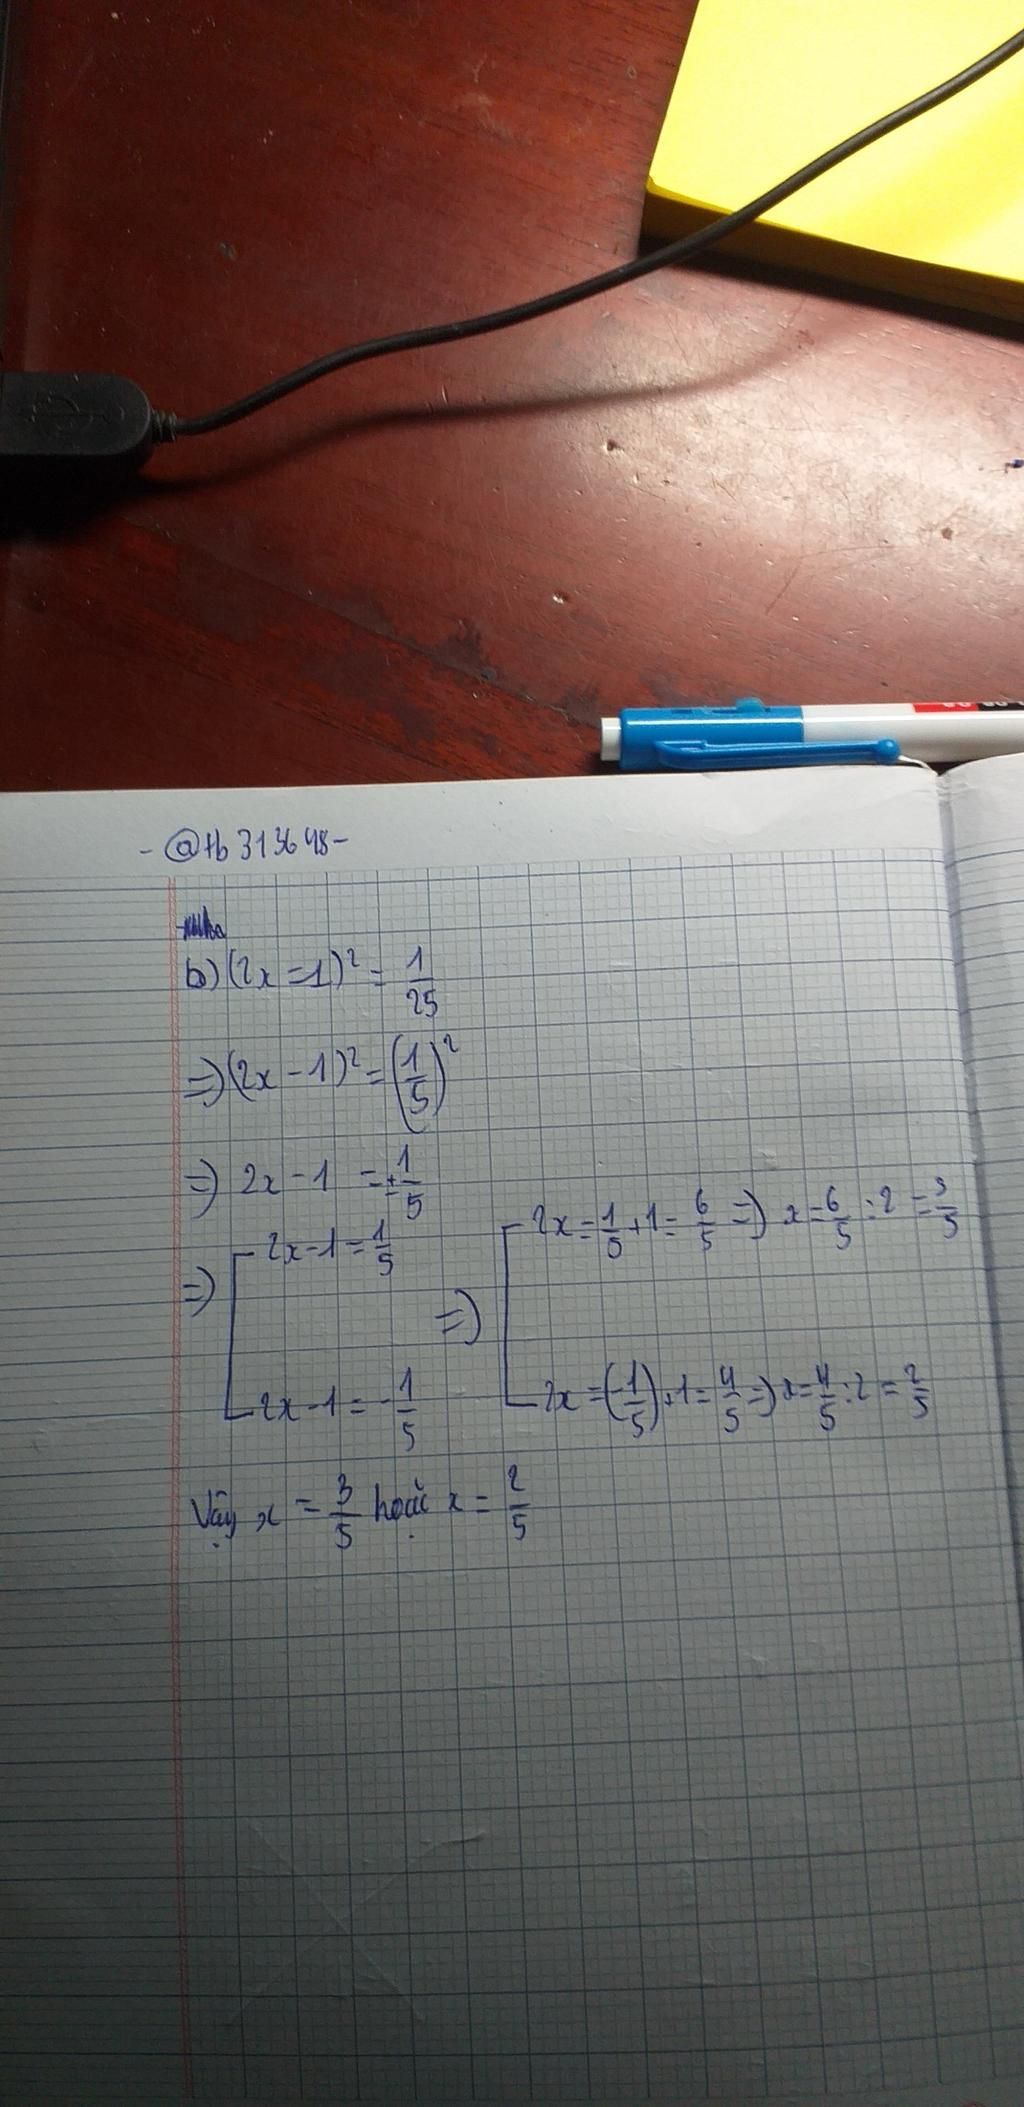 -@tb313648-
b) (2x = 1)² = 1/25
=) (2x - 1)² = (1/5)²
=) 2x - 1 = ± 1/5
=) [ 2x - 1 = 1/5 =) [ 2x = 1/5 + 1 = 6/5 =) x = 6/5 : 2 = 3/5
2x - 1 = - 1/5 2x = (-1/5) + 1 = 4/5 =) x = 4/5 : 2 = 2/5
Vậy x = 3/5 hoặc x = 2/5